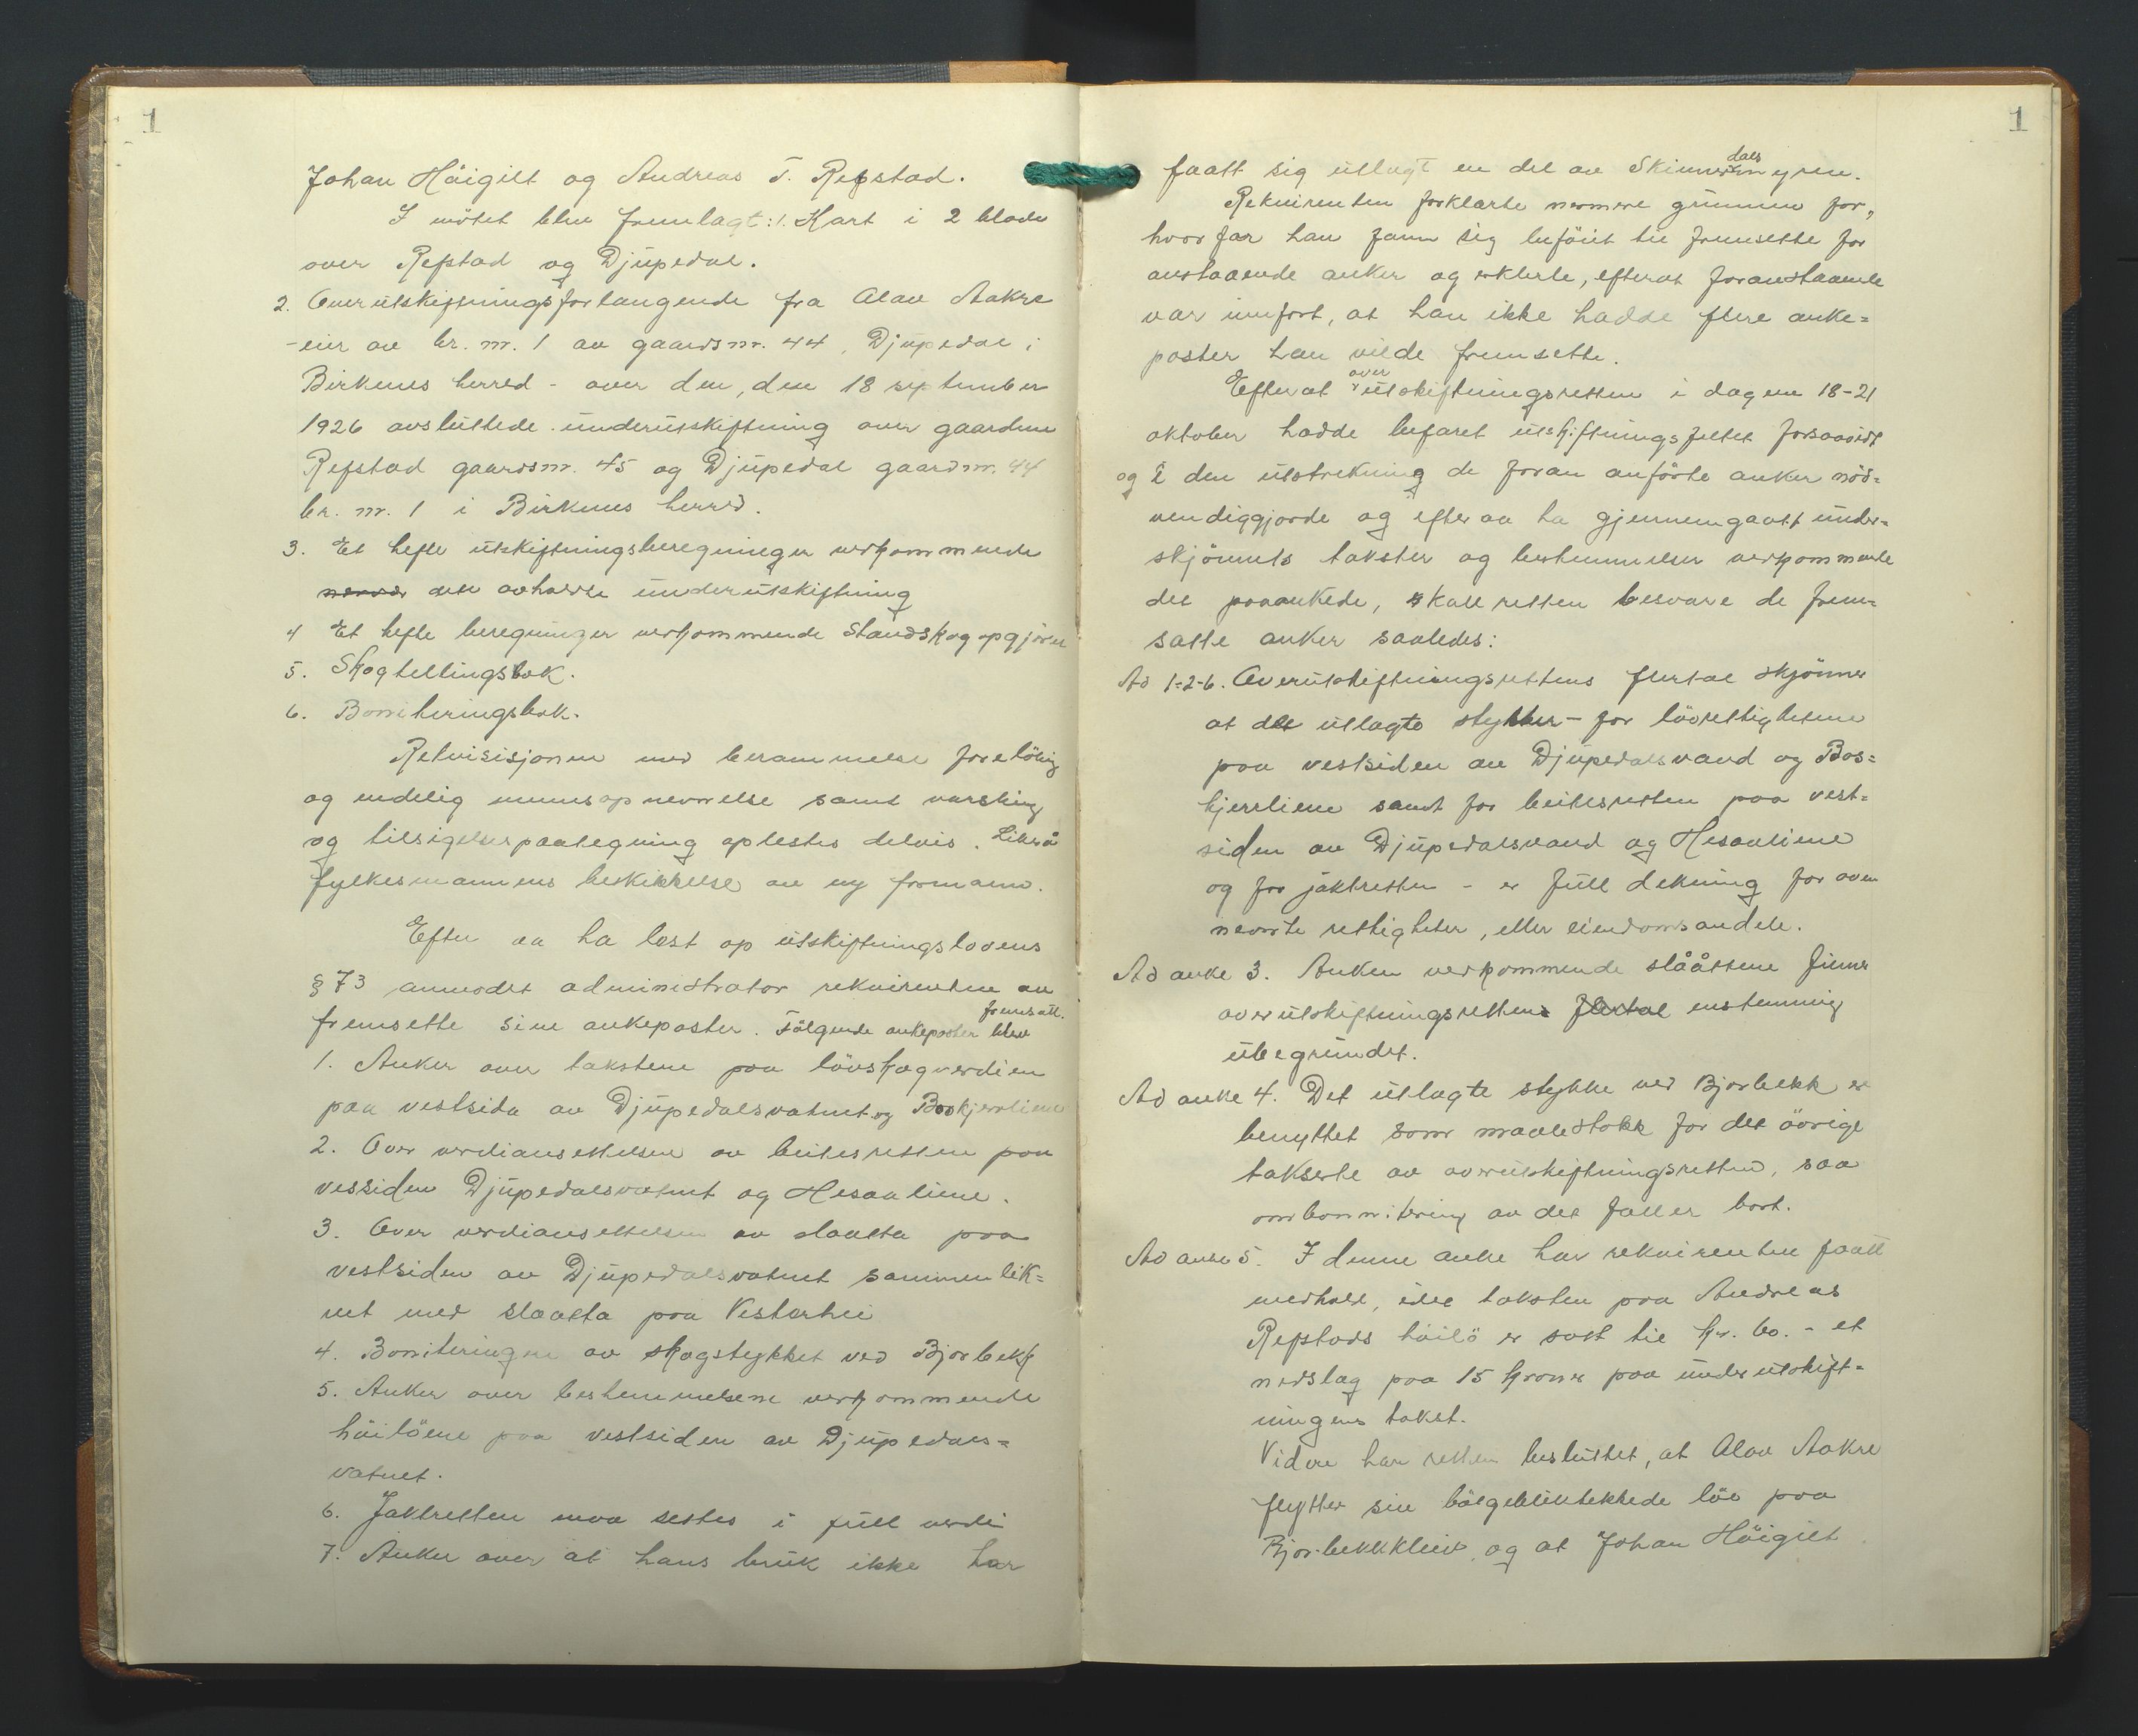 1
Johan Höigilt og Andreas T. Refstad.
I mötet blev fremlagt: 1. Kart i 2 blade
over Refstad og Djupedal.
2. Overutskiftningsforlangende fra Alav Aakre
- eier av br. nr. 1 av gaardsnr. 44, Djupedal i
Birkenes herred - over den, den 18 september
1926 avsluttede underutskiftning over gaardene
Refstad gaardsnr. 45 og Djupedal gaardnr. 44
br. nr. 1 i Birkenes herred.
3. Et hefte utskiftningsberegninger vedkommende
den avholdte underutskiftning
4 Et hefte beregninger vedkommende standskogopgjöret
5. Skogtellingsbok.
6. Boniteringsbok.
Rekvisisjonen med berammelse forelöbig
og endelig mannsopnevnelse samt varsling
og tilsigelsespaategning oplestes delvis. Likeså
fylkesmannens beskikkelse av ny formann.
Efter aa ha lest op utskiftningslovens
§ 73 anmodet administrator rekvirenten om
fremsette sine ankeposter. Fölgende ankeposter blev fremsatt.
1. Anker over takstene paa lövskogverdien
paa vestsida av Djupedalsvatnet og Boskjerrliene
2. Over verdiansettelsen av beitesretten paa
vessiden Djupedalsvatnet og Hesaaliene.
3. Over verdiansettelsen av slaatta paa
vestsiden av Djupedalsvatnet sammenlik=
net med slaatta paa Vesterhei
4. Boniteringen av skogstykket ved Bjorbekk
5. Anker over bestemmelsene vedkommende
höilöene paa vestsiden av Djupedals=
vatnet.
6. Jaktretten maa settes i full verdi
7. Anker over at hans bruk ikke har
1
faatt sig utlagt en del av Skinnerdalsmyren.
Rekvirenten forklarte nermere grunnen for,
hvorfor han fann sig beföiet til fremsette for
anstaaende anker og erklerte, efterat foranstaaende
var innfört, at han ikke hadde flere anke=
poster han vilde fremsette.
Efterat overutskiftningsretten i dagene 18-21
oktober hadde befaret utskiftningsfeltet forsaavidt
og i den utstrekning de foran anförte anker nöd=
vendiggjorde og efter aa ha gjennemgaatt under=
skjönnets takster og bestemmelser vedkommende
det paaankede, skall retten besvare de frem=
satte anker saaledes:
Ad 1-2-6. Overutskiftningsrettens flertal skjönner
at det utlagte stykker - for lövrettighetene
paa vestsiden av Djupedalsvand og Bos=
kjerrliene samt for beitesretten paa vest=
siden av Djupedalsvand og Hesaaliene
og for jaktretten - er full dekning for oven
nevnte rettigheter, eller eiendomsandele.
Ad anke 3. Anken vedkommende slååttene finner
overutskiftningsretten flertal enstemmig
ubegrundet.
Ad anke 4. Det utlagte stykke ved Bjorbekk er
benyttet som maalestokk for det övrige
takserte av overutskiftningsretten, saa
ombonnitering av det faller bort.
Ad anke 5. I denne anke har rekvirenten faatt
medhold, idet taksten paa Andreas
Refstads höilö er satt til kr. 60. - et
nedslag paa 15 kroner paa underutskift=
ningens takst.
Videre har retten besluttet, at Alov Aakre
flytter sin bölgeblikktekkede löe paa
Bjorbekkkleiv, og at Johan Höigilt